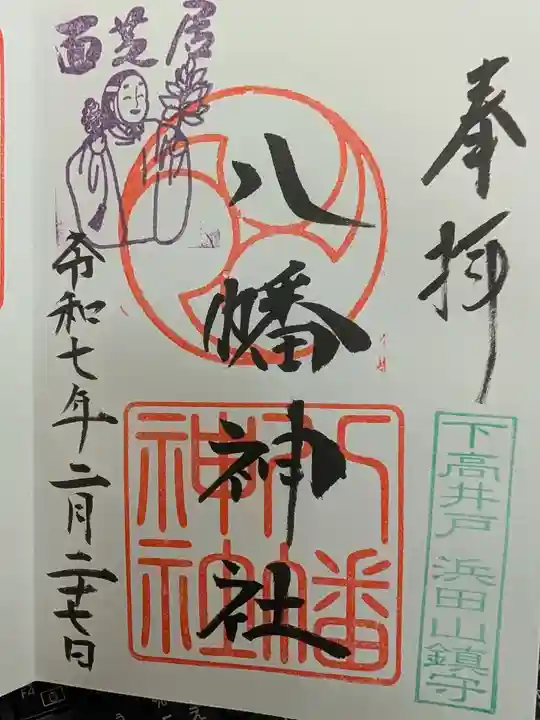 奉拝
下高井戸 浜田山鎮守
八幡神社
八幡神社
面芝居
令和七年二月二十七日
F4